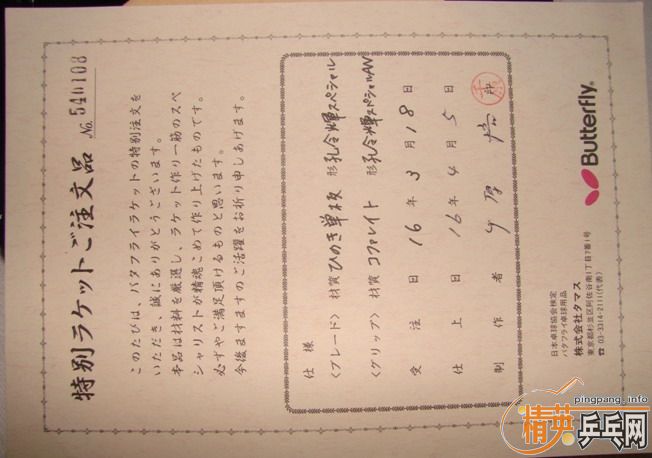 特別ラケットご注文品 No. 540108
このたびは、バタフライラケットの特別注文を
いただき、誠にありがとうございます。
本品は材料を厳選し、ラケット作り一筋のスペ
シャリストが精魂こめて作り上げたものです。
必ずやご満足頂けるものと思います。
今後ますますのご活躍をお祈り申しあげます。
仕様
〈ブレード〉 材質 ひのき単板 形 孔令輝スペシャル
〈グリップ〉 材質 コクタレイト 形 孔令輝スペシャルAN
受注日 16年3月18日
仕上日 16年4月5日
制作者
Butterfly®
日本卓球協会検定
バタフライ卓球用品
株式会社タマス
東京都杉並区阿佐谷南1丁目7番1号
☎ 03-3314-2111(代表)
pingpang.info
精英乒乓网